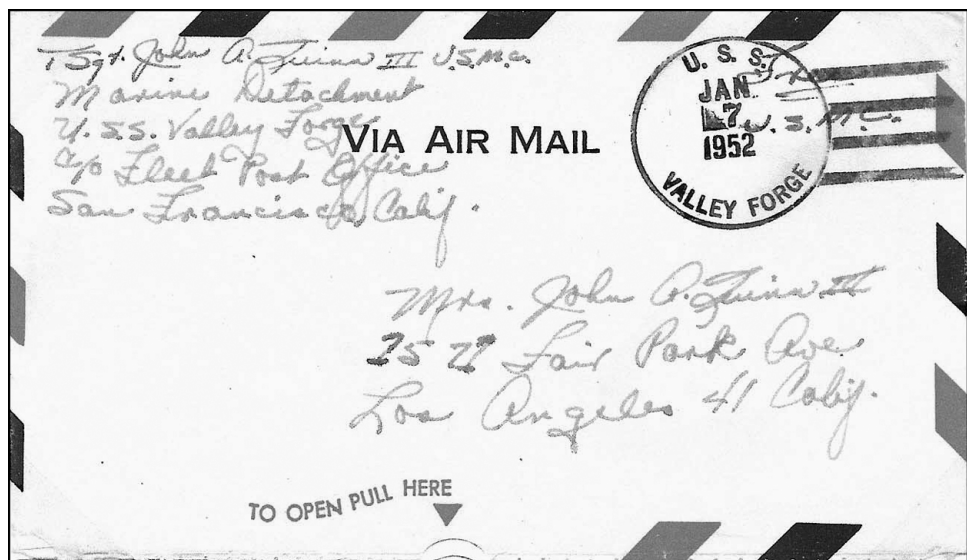 TSgt. John A. Quinn III U.S.M.C.
Marine Detachment
U.S.S. Valley Forge
c/o Fleet Post Office
San Francisco, Calif.
VIA AIR MAIL
U. S. S.
JAN
7
1952
VALLEY FORGE
Free
U.S.M.C.
Mrs. John A. Quinn III
Fair Park Ave
Los Angeles 41 Calif.
TO OPEN PULL HERE